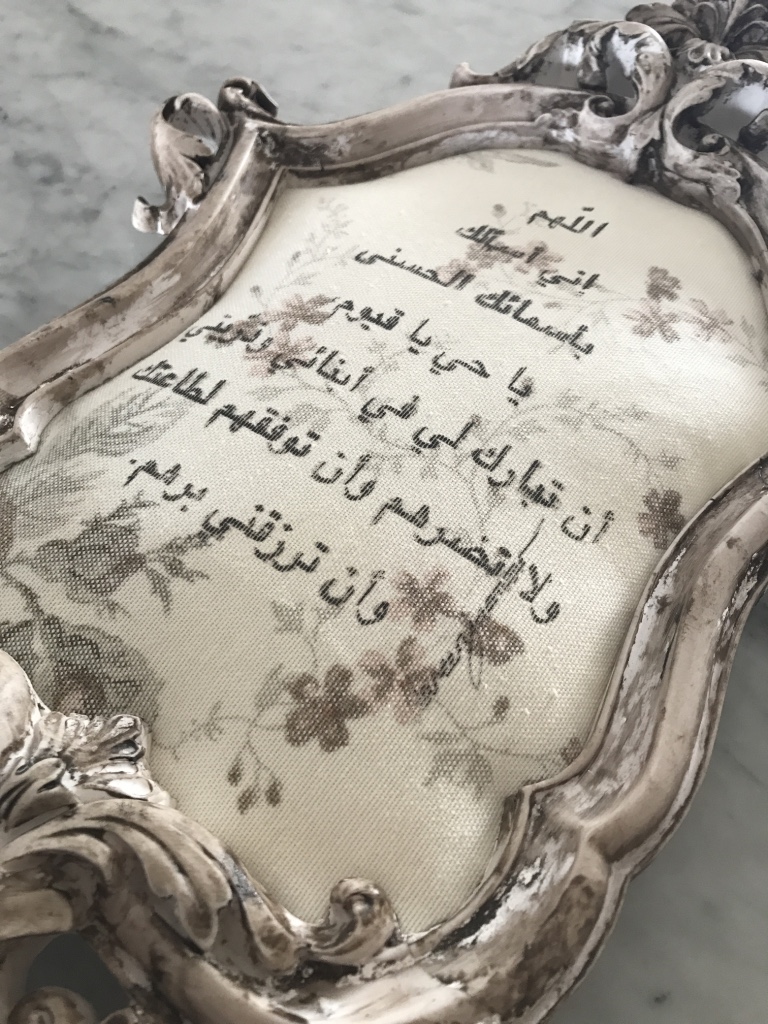 اللهم
إني أسألك
بأسمائك الحسنى
يا حي يا قيوم
أن تبارك لي في أبنائي وذريتي
ولا تضرهم وأن توفقهم لطاعتك
وأن ترزقني برهم.